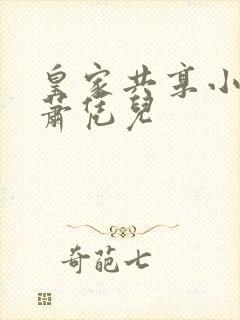 皇家共享小
萧恁儿
奇葩七